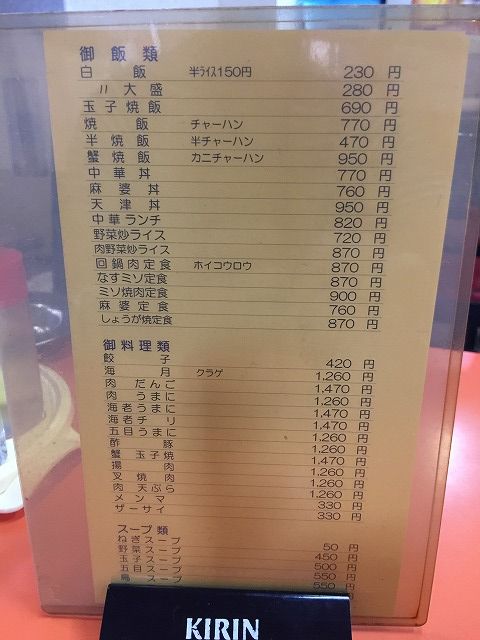 御飯類
白飯 半ライス150円 230円
〃大盛 280円
玉子焼飯 690円
焼飯 チャーハン 770円
半焼飯 半チャーハン 470円
蟹焼飯 カニチャーハン 950円
中華丼 770円
麻婆丼 760円
天津丼 950円
中華ランチ 820円
野菜炒ライス 720円
肉野菜炒ライス 870円
回鍋肉定食 ホイコウロウ 870円
なすミソ定食 870円
ミソ焼肉定食 900円
麻婆定食 760円
しょうが焼定食 870円
御料理類
餃子 420円
海月 クラゲ 1,260円
肉だんご 1,470円
肉うまに 1,260円
海老うまに 1,470円
海老チリ 1,470円
五目うまに 1,260円
酢豚 1,260円
蟹玉子焼 1,470円
揚肉 1,260円
叉焼肉 1,260円
肉天ぷら 1,260円
メンマ 330円
ザーサイ 330円
スープ類
ねぎスープ 50円
野菜スープ 450円
玉子スープ 500円
五目スープ 550円
鳥スープ 550円
KIRIN